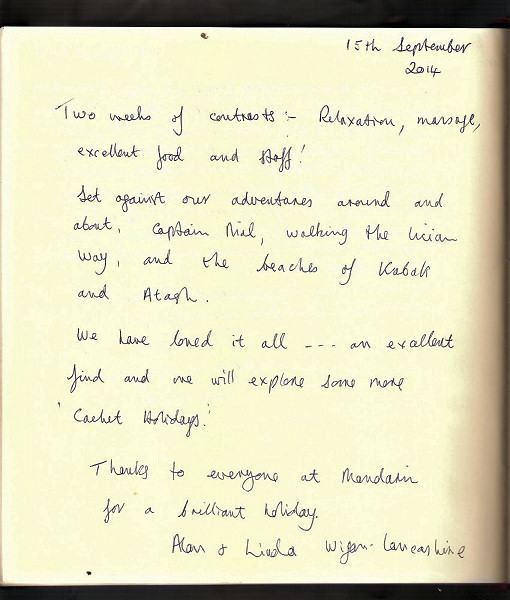 15th September
2014
Two weeks of contrasts :- Relaxation, massage,
excellent food and staff!
Set against our adventures around and
about, Captain Mial, walking the lician
Way, and the beaches of Kabak
and Atagh.
We have loved it all --- an excellent
find and we will explore some more
'Cachet Holidays!'
Thanks to everyone at Mandarin
for a brilliant holiday.
Alan & Linda Wigan - Lancashire